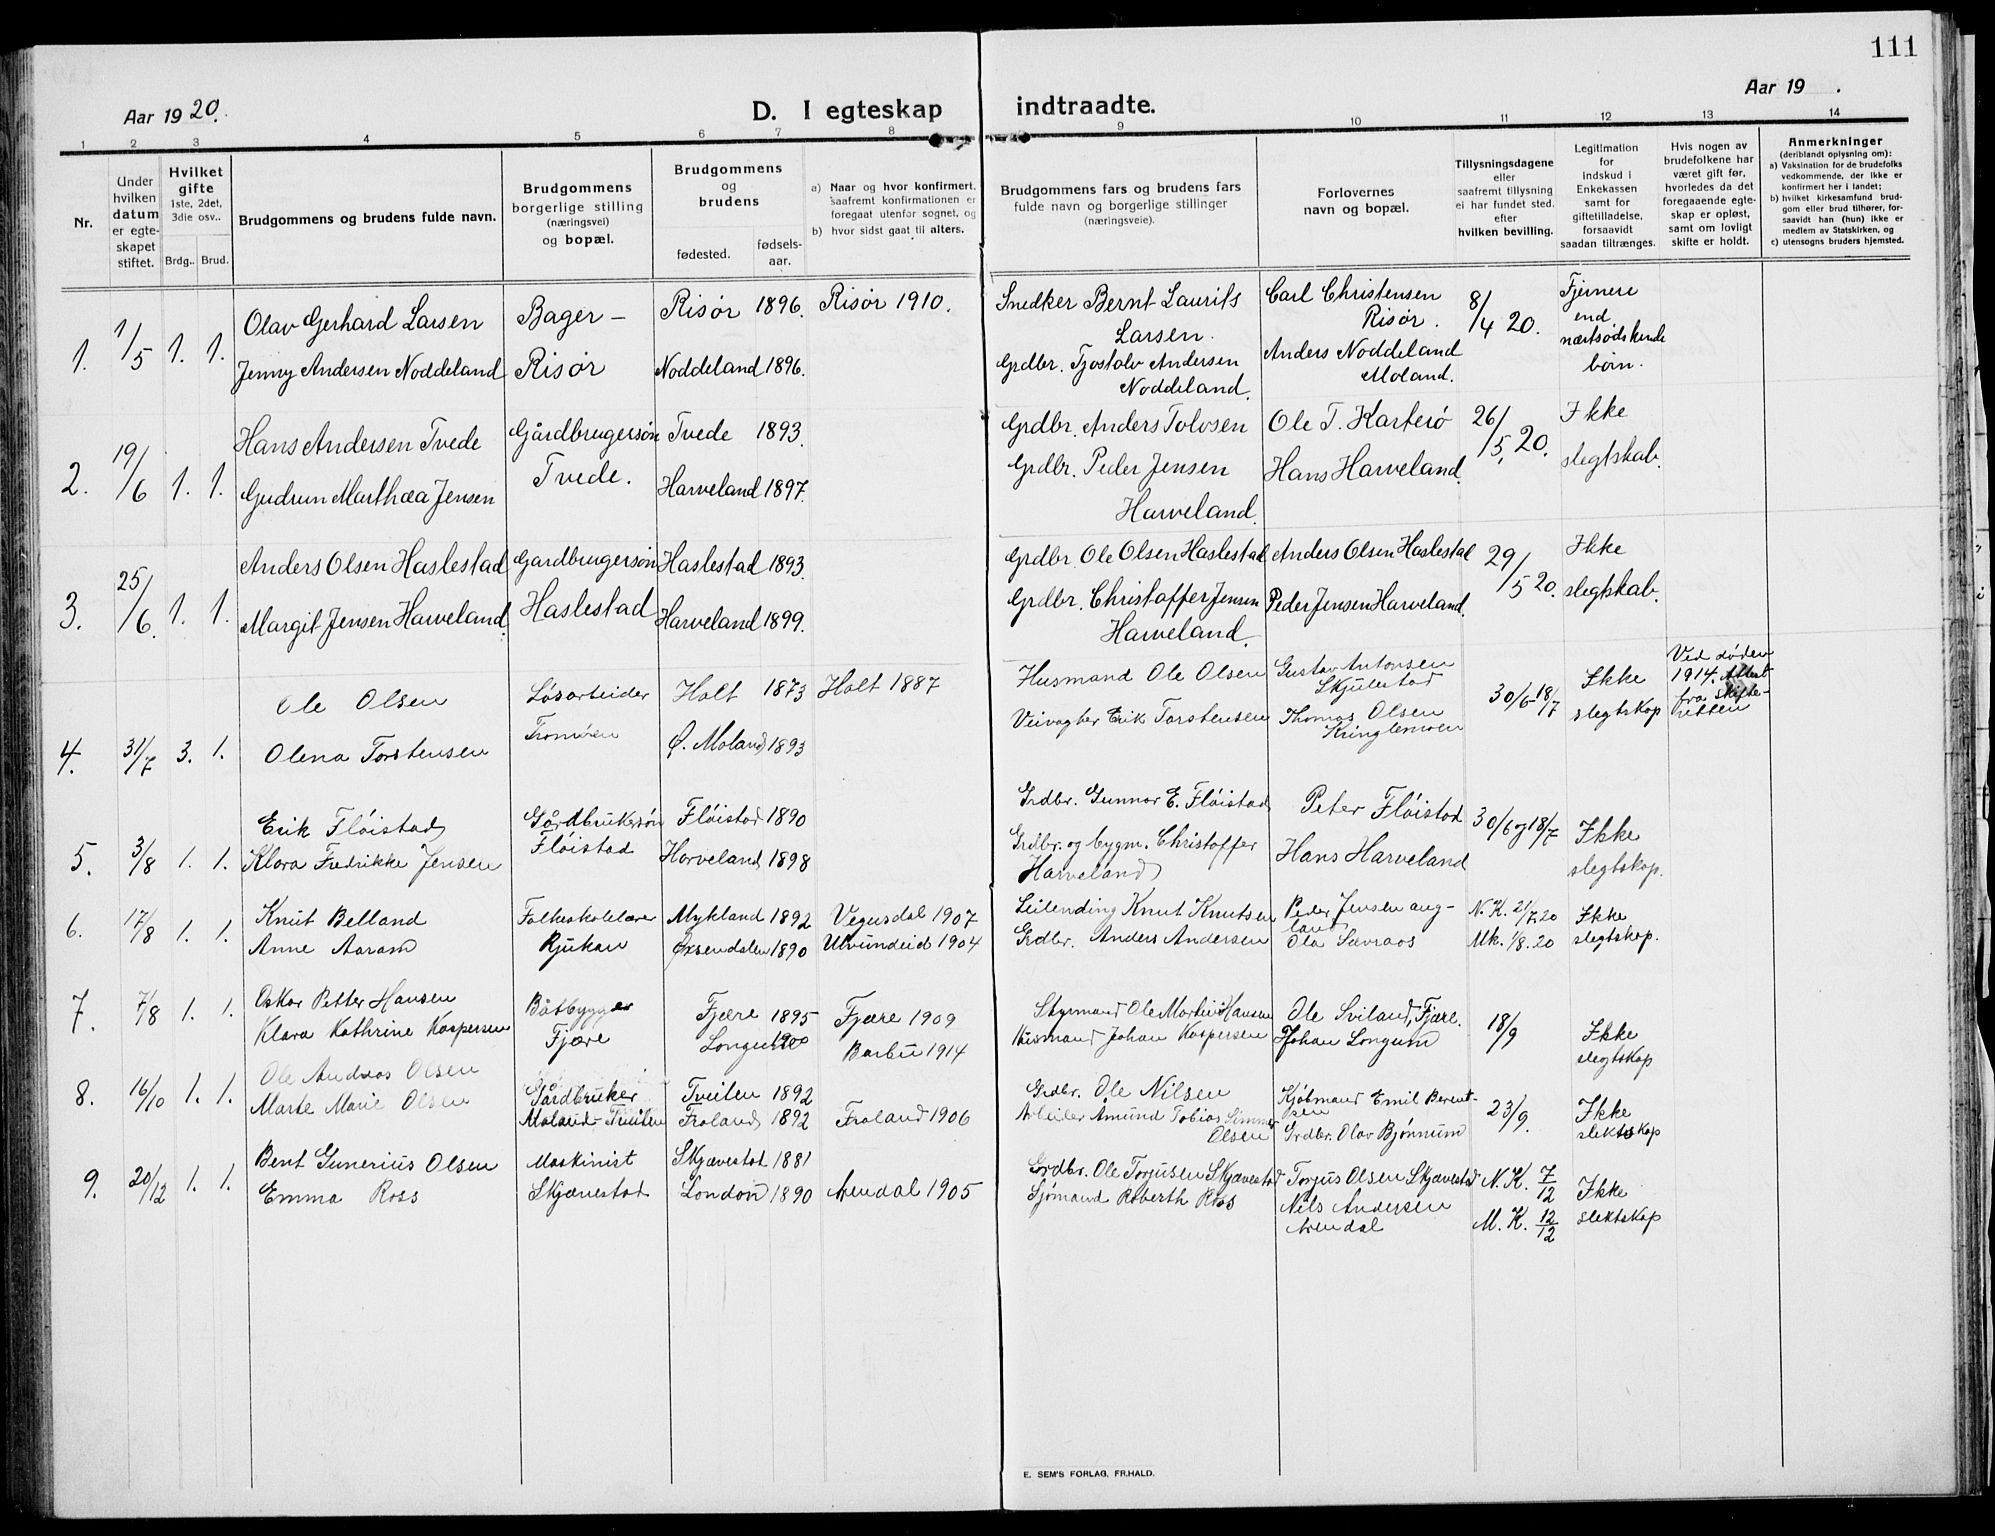 111
Aar 1920.
D. I egteskap indtraadte.
Aar 19 .
1 2 3 4 5 6 7 8 9 10 11 12 13 14
Nr.
Under hvilken datum er egte-skapet stiftet.
Hvilket gifte 1ste, 2det, 3die osv..
Brdg.. Brud.
Brudgommens og brudens fulde navn.
Brudgommens borgerlige stilling (næringsvei) og bopæl.
Brudgommens og brudens
fødested.
fødsels-aar.
a) Naar og hvor konfirmert, saafremt konfirmationen er foregaat utenfor sognet, og
b) hvor sidst gaat til alters.
Brudgommens fars og brudens fars fulde navn og borgerlige stillinger (næringsveie).
Forlovernes navn og bopæl.
Tillysningsdagene eller saafremt tillysning ei har fundet sted, efter hvilken bevilling.
Legitimation for indskud i Enkekassen samt for giftetilladelse, forsaavidt saadan tiltrænges.
Hvis nogen av brudefolkene har været gift før, hvorledes da det foregaaende egte-skap er opløst, samt om lovligt skifte er holdt.
Anmerkninger
(deriblandt oplysning om):
a) Vaksination for de brudefolks vedkommende, der ikke er konfirmert her i landet;
b) hvilket kirkesamfund brud-gom eller brud tilhører, for-saavidt han (hun) ikke er medlem av Statskirken, og
c) utensogns bruders hjemsted.
1. 1/5 1. 1.
Olav Gerhard Larsen
Jenny Andersen Noddeland
Bager –
Risør
Risør 1896.
Noddeland 1896.
Risør 1910.
Snedker Bernt Laurits
Larsen.
Grdbr. Tjostolv Andersen
Noddeland.
Carl Christensen
Risør.
Anders Noddeland
Moland.
8/4 20.
Fjernere
end
nærtsødskende
børn.
2. 19/6 1. 1.
Hans Andersen Tvede
Gudrun Marthæa Jensen
Gårdbrugersøn
Tvede.
Tvede 1893.
Harveland 1897.
Grdbr. Anders Tolvsen
Grdbr. Peder Jensen
Harveland.
Ole T. Karterø
Hans Harveland.
26/5. 20.
Ikke
slegtskab.
3. 25/6. 1. 1.
Anders Olsen Haslestad
Margit Jensen Harveland.
Gardbrugersøn
Haslestad
Haslestad 1893.
Harveland 1899.
Grdbr. Ole Olsen Haslestad
Grdbr. Christoffer Jensen
Harveland.
Anders Olsen Haslestad
Peder Jensen Harveland.
29/5 20.
Ikke
slegtskab.
4. 31/7 3. 1.
Ole Olsen
Olena Torstensen
Løsarbeider
Tromøen
Holt 1873
Ø. Moland 1893
Holt 1887
Husmand Ole Olsen
Veivogter Erik Torstensen
Gustav Antonsen
Skjulestad
Thomas Olsen
Kringlemoen
30/6-18/7
Ikke
slegtskap
Ved døden
1914. Attest
fra Skifte-
retten
5. 3/8 1. 1.
Erik Fløistad
Klara Fredrikke Jensen
Gårdbrukersøn
Fløistad
Fløistad 1890
Harveland 1898
Grdbr. Gunnar E. Fløistad
Grdbr. og bygm. Christoffer
Harveland
Peter Fløistad
Hans Harveland
30/6 og 18/7
Ikke
slegtskap.
6. 17/8 1. 1.
Knut Belland
Anne Aaram
Folkeskolelærer
Rjukan
Mykland 1892
Øksendalen 1890
Vegusdal 1907
Ulvundeid 1904
Leilending Knut Knutsen
Grdbr. Anders Andersen
Peder Jensen aug-
land
Ola Savraas
N. K. 21/7.20
Mk. 1/8. 20
Ikke
slegtskap.
7. 7/8 1. 1.
Oskar Petter Hansen
Klara Kathrine Kaspersen
Båtbygger
Fjære
Fjære 1895
Longum 1900
Fjære 1909
Barbu 1914
Styrmand Ole Martin Hansen
Husmand Johan Kaspersen
Ole Sviland, Fjære.
Johan Longum
18/9
Ikke
slegtskap
8. 16/10 1. 1.
Ole Andreas Olsen
Marte Marie Olsen
Gårdbruker
Moland – Tveiten
Tveiten 1892
Froland 1892
Froland 1906
Grdbr. Ole Nilsen
Arbeider Amund Tobias
Olsen
Kjøbmand Emil Berent-
sen
Grdbr. Olav Bjønnum
23/9.
Ikke
slektskap
9. 20/12 1. 1.
Bent Gunerius Olsen
Emma Ross
Maskinist
Skjævestad
Skjævestad 1881
London 1890
Arendal 1905
Gordbr. Ole Torjusen Skjævestad
Sjømand Roberth Ross
Torjus Olsen Skjævestad
Nils Andersen
Arendal
N. K. 7/12
M. K. 12/12
Ikke
slektskap
E. SEM'S FORLAG, FR.HALD.